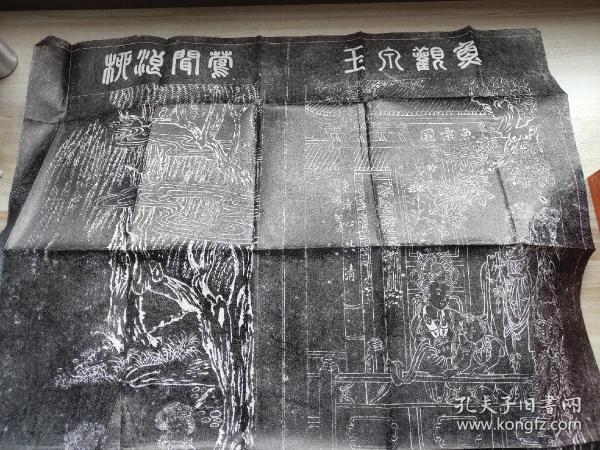 柳浪聞鶯
玉泉觀魚
魚樂國
孔夫子旧书网
www.kongfz.com